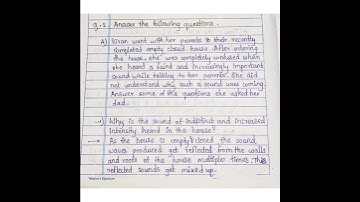 Q.1 Answer the following questions.
A) Kiran went with her parents to their recently
completed empty closed house. After entering
the house, she was completely confused when
she heard a faint and increasingly important
sound while talking to her parents. She did
not understand why such a sound was coming.
Answer some of the questions she asked her
dad.
1) Why is the sound of indistinct and increased
intensity heard in the house?
→ As the house is empty & closed, the sound
waves produced get reflected from the walls
and roofs of the house multiple times. This
reflected sounds get mixed up.
Teacher's Signature